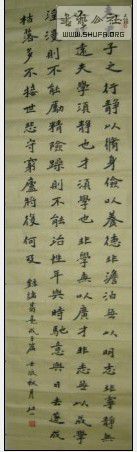 書法公社
WWW.SHUFA.ORG
子之行靜以脩身儉以養德非澹泊無以明志非寧靜無
以致遠夫學須靜也才須學也非學無以廣才非志無以成學
淫漫則不能勵精險躁則不能治性年與時馳意與日去遂成
枯落多不接世悲守窮廬將復何及
諸葛亮戒子篇 秋月